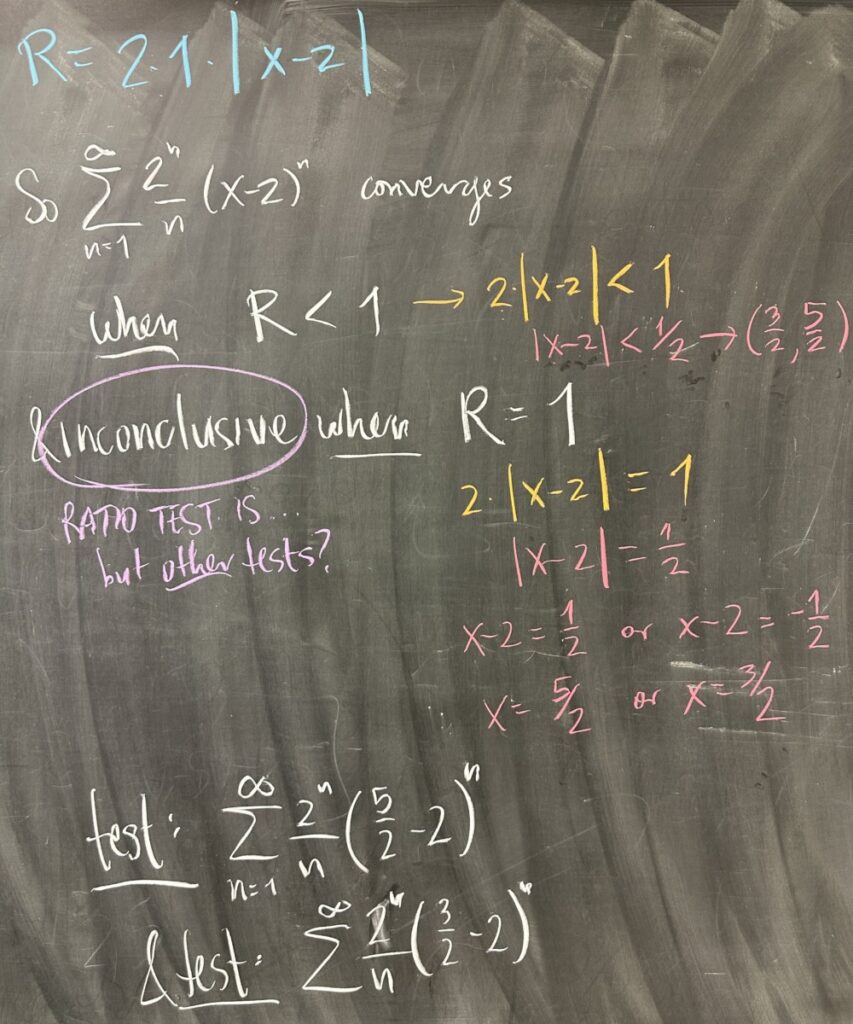 R = 2·1·|x-2|
So ∞∑n=1 2ⁿ/n (x-2)ⁿ converges
when R < 1 → 2·|x-2| < 1
|x-2| < 1/2 → (3/2, 5/2)
& inconclusive when R = 1
2·|x-2| = 1
RATIO TEST IS...
but other tests?
|x-2| = 1/2
x-2 = 1/2 or x-2 = -1/2
x = 5/2 or x = 3/2
test: ∞∑n=1 2ⁿ/n (5/2 - 2)ⁿ
& test: ∞∑ 2ⁿ/n (3/2 - 2)ⁿ